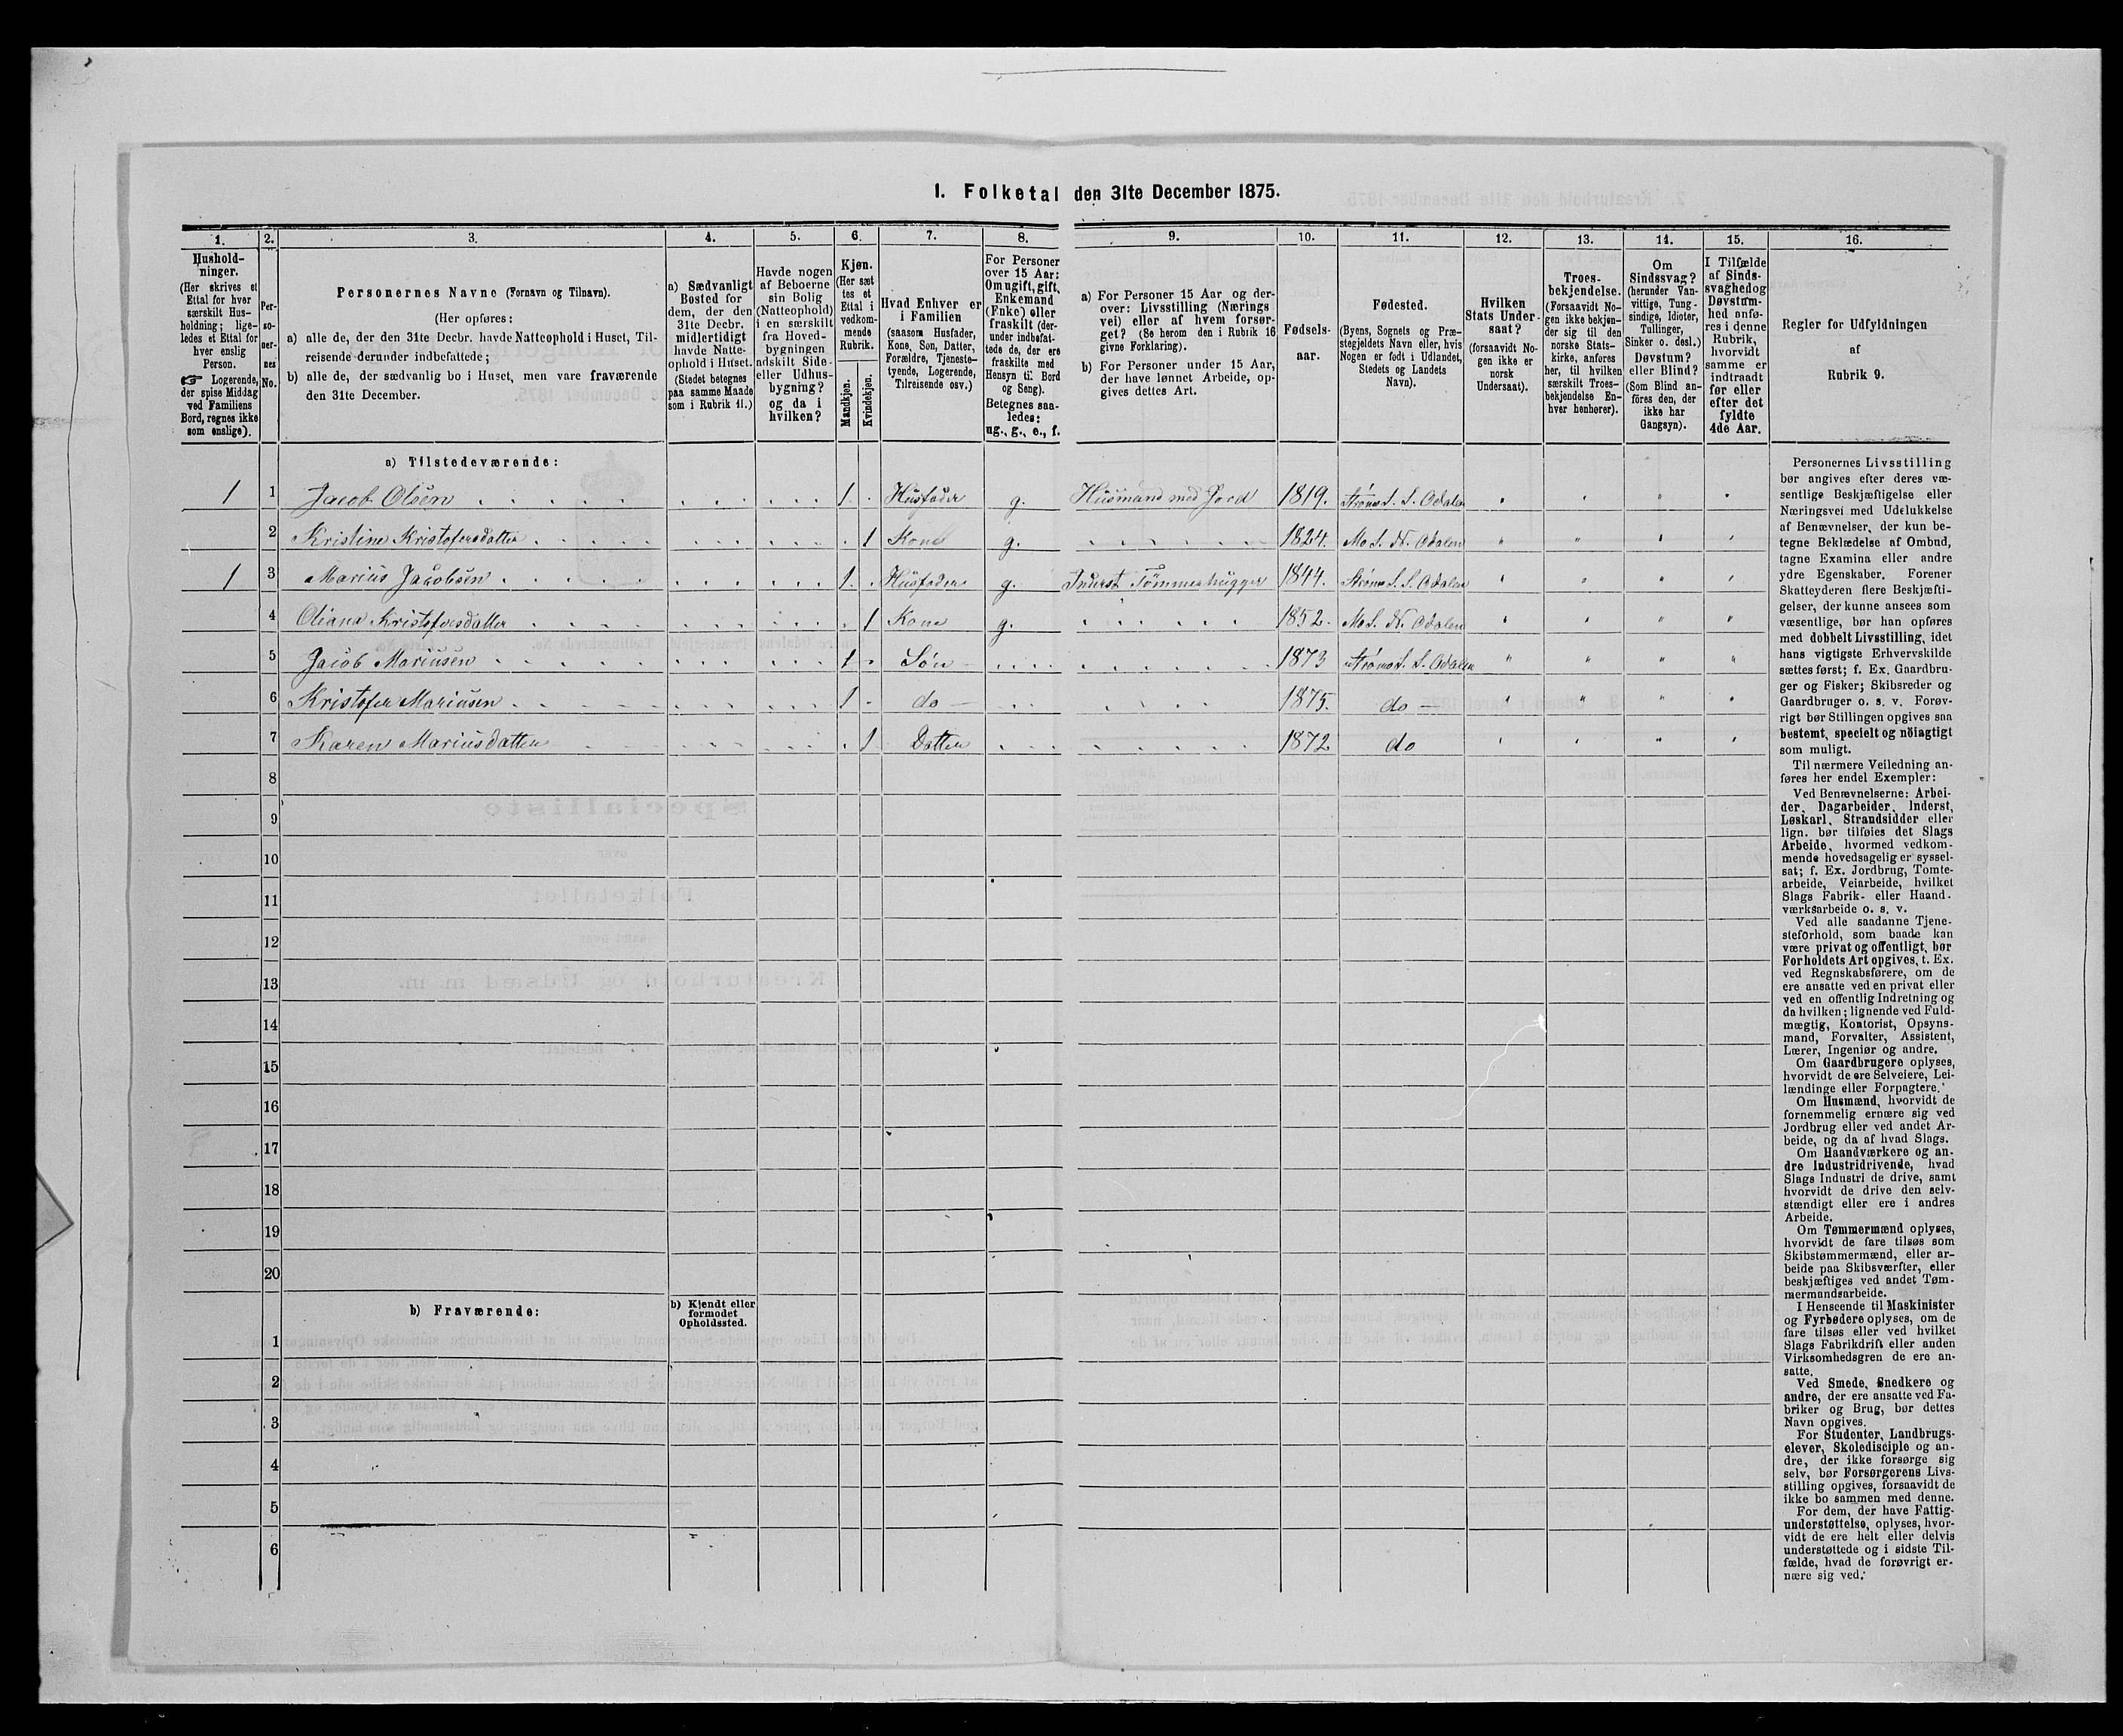 1. Folketal den 31te December 1875.
1.
2.
3.
4.
5.
6.
7.
8.
9.
10.
11.
12.
13.
14.
15.
16.
Hushold-
ninger.
(Her skrives et
Ettal for hver
særskilt Hus-
holdning; lige-
ledes et Ettal for
hver enslig
Person.
☞ Logerende,
der spise Middag
ved Familiens
Bord, regnes ikke
som enslige).
Per-
so-
ner-
nes
No.
Personernes Navne (Fornavn og Tilnavn).
(Her opføres:
a) alle de, der den 31te Decbr. havde Natteophold i Huset, Til-
reisende derunder indbefattede;
b) alle de, der sædvanlig bo i Huset, men vare fraværende
den 31te December.
a) Sædvanligt
Bosted for
dem, der den
31te Decbr.
midlertidigt
havde Natte-
ophold i Huset.
(Stedet betegnes
paa samme Maade
som i Rubrik 11.)
Havde nogen
af Beboerne
sin Bolig
(Natteophold)
i en særskilt
fra Hoved-
bygningen
adskilt Side-
eller Udhus-
bygning?
og da i
hvilken?
Kjøn.
(Her sæt
tes et
Ettal i
vedkom-
mende
Rubrik.
Mandkjøn.
Kvindekjøn.
Hvad Enhver er
i Familien
(saasom Husfader,
Kone, Søn, Datter,
Forældre, Tjeneste-
tyende, Logerende,
Tilreisende osv.)
For Personer
over 15 Aar:
Om ugift, gift,
Enkemand
(Enke) eller
fraskilt (der-
under indbefat-
tede de, der ere
fraskilte med
Hensyn til Bord
og Seng).
Betegnes saa-
ledes:
ug., g., e., f.
a) For Personer 15 Aar og der-
over: Livsstilling (Nærings
vei) eller af hvem forsør-
get? (Se herom den i Rubrik 16
givne Forklaring).
b) For Personer under 15 Aar,
der have lønnet Arbeide, op-
gives dettes Art.
Fødsels-
aar.
Fødested.
(Byens, Sognets og Præ-
stegjeldets Navn eller, hvis
Nogen er født i Udlandet,
Stedets og Landets
Navn).
Hvilken
Stats Under-
saat?
(forsaavidt No-
gen ikke er
norsk
Undersaat).
Troes-
bekjendelse.
(Forsaavidt No-
gen ikke bekjen-
der sig til den
norske Stats-
kirke, anføres
her, til hvilken
særskilt Troes-
bekjendelse En-
hver henhører).
Om
Sindssvag?
(herunder Van-
vittige, Tung-
sindige, Idioter,
Tullinger,
Sinker o. desl.)
Døvstum?
eller Blind?
(Som Blind an-
føres den, der
ikke har
Gangsyn).
I Tilfælde
af Sinds-
svaghed og
Døvstum-
hed anfø-
res i denne
Rubrik,
hvorvidt
samme er
indtraadt
før eller
efter det
fyldte
4de Aar.
Regler for Udfyldningen
af
Rubrik 9.
a) Tilstedeværende:
1 1 Jacob Olsen 1 Husfader g. Husmand med Jord 1819. Strøms S. S. Odalen
2 Kristine Kristofersdatter 1 Kone g. 1824. Mo S. N. Odalen
1 3 Marius Jacobsen 1 Husfader g. Inderst Tømmerhugger 1844. Strøms S. S. Odalen
4 Oliana Kristofersdatter 1 Kone g. 1852. Mo S. N. Odalen
5 Jacob Mariusen 1 Søn 1873 Strøms S. S. Odalen
6 Kristofer Mariusen 1 do 1875. do
7 Karen Mariusdatter 1 Datter 1872 do
8
9
10
11
12
13
14
15
16
17
18
19
20
b) Fraværende:
b) Kjendt eller
formodet
Opholdssted.
1
2
3
4
5
6
Personernes Livsstilling
bør angives efter deres væ-
sentlige Beskjæftigelse eller
Næringsvei med Udelukkelse
af Benævnelser, der kun be-
tegne Beklædelse af Ombud,
tagne Examina eller andre
ydre Egenskaber. Forener
Skatteyderen flere Beskjæfti-
gelser, der kunne ansees som
væsentlige, bør han opføres
med dobbelt Livsstilling, idet
hans vigtigste Erhvervskilde
sættes først; f. Ex. Gaardbru-
ger og Fisker; Skibsreder og
Gaardbruger o. s. v. Forøv-
rigt bør Stillingen opgives saa
bestemt, specielt og nöiagtigt
som muligt.
Til nærmere Veiledning an-
føres her endel Exempler:
Ved Benævnelserne: Arbei-
der, Dagarbeider, Inderst,
Løskarl, Strandsidder eller
lign. bør tilføies det Slags
Arbeide, hvormed vedkom-
mende hovedsagelig er syssel-
sat; f. Ex. Jordbrug, Tomte-
arbeide, Veiarbeide, hvilket
Slags Fabrik- eller Haand-
værksarbeide o. s. v.
Ved alle saadanne Tjene-
steforhold, som baade kan
være privat og offentligt, bør
Forholdets Art opgives, t. Ex.
ved Regnskabsførere, om de
ere ansatte ved en privat eller
ved en offentlig Indretning og
da hvilken; lignende ved Fuld-
mægtig, Kontorist, Opsyns-
mand, Forvalter, Assistent,
Lærer, Ingeniør og andre.
Om Gaardbrugere oplyses,
hvorvidt de ere Selveiere, Lei-
lændinge eller Forpagtere.
Om Husmænd, hvorvidt de
fornemmelig ernære sig ved
Jordbrug eller ved andet Ar-
beide, og da af hvad Slags.
Om Haandværkere og an-
dre Industridrivende, hvad
Slags Industri de drive, samt
hvorvidt de drive den selv-
stændigt eller ere i andres
Arbeide.
Om Tømmermænd oplyses,
hvorvidt de fare tilsøs som
Skibstømmermænd, eller ar-
beide paa Skibsværfter, eller
beskjæftiges ved andet Tøm-
mermandsarbeide.
I Henseende til Maskinister
og Fyrbødere oplyses, om de
fare tilsøs eller ved hvilket
Slags Fabrikdrift eller anden
Virksomhedsgren de ere an-
satte.
Ved Smede, Snedkere og
andre, der ere ansatte ved Fa-
briker og Brug, bør dettes
Navn opgives.
For Studenter, Landbrugs-
elever, Skoledisciple og an-
dre, der ikke forsørge sig
selv, bør Forsørgerens Livs-
stilling opgives, forsaavidt de
ikke bo sammen med denne.
For dem, der have Fattig-
understøttelse, oplyses, hvor-
vidt de ere helt eller delvis
understøttede og i sidste Til-
fælde, hvad de forøvrigt er-
nære sig ved.